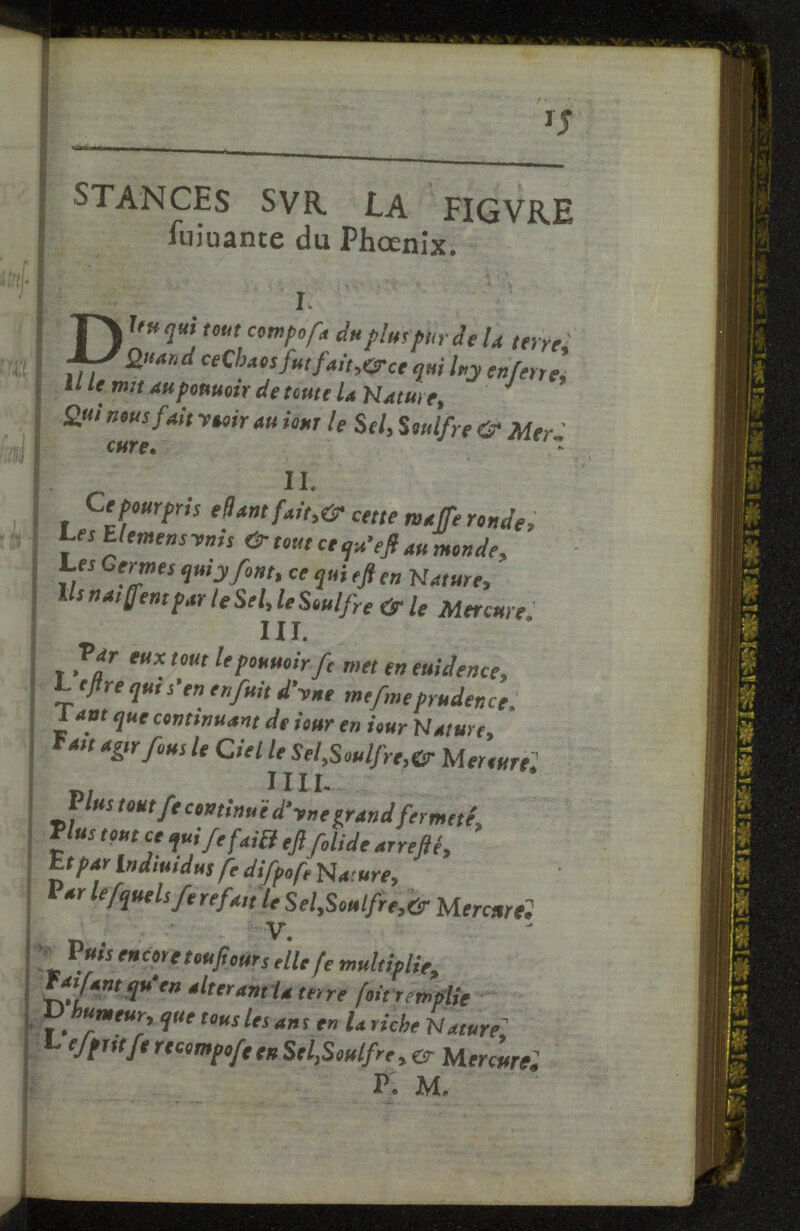 15
STANCES SVR LA FIGVRE
ſuiuante du Phœnix.
I.
DIeu qui tout compoſa du plus pur de la terre,
Quand ce Chaos fut fait, & ce qui luy enſerre,
Il le mit au pouuoir de toute la Nature,
Qui nous fait væoir au iour le Sel, Soulfre & Mer-
cure.
II.
Ce pourpris eſtant fait, & cette maſſe ronde,
Les Elemens vnis & tout ce qu'eſt au monde,
Les Germes qui y ſont, ce qui eſt en Nature,
Ils naiſſent par le Sel, le Soulfre & le Mercure.
III.
Par eux tout le pouuoir ſe met en euidence,
L'eſtre qui s'en enſuit d'vne meſme prudence.
Tant que continuant de iour en iour Nature,
Fait agir ſous le Ciel le Sel, Soulfre, & Mercure.
IIII.
Plus tout ſe continuë d'vne grand fermeté,
Plus tout ce qui ſe faict eſt ſolide arreſté,
Et par Indiuidus ſe diſpoſe Nature,
Par leſquels ſe refait le Sel, Soulfre, & Mercure.
V.
Puis encore touſiours elle ſe multiplie,
Faiſant qu'en alterant la terre ſoit remplie
D'humeur, que tous les ans en la riche Nature,
L'eſprit ſe recompoſe en Sel, Soulfre, & Mercure.
P. M.